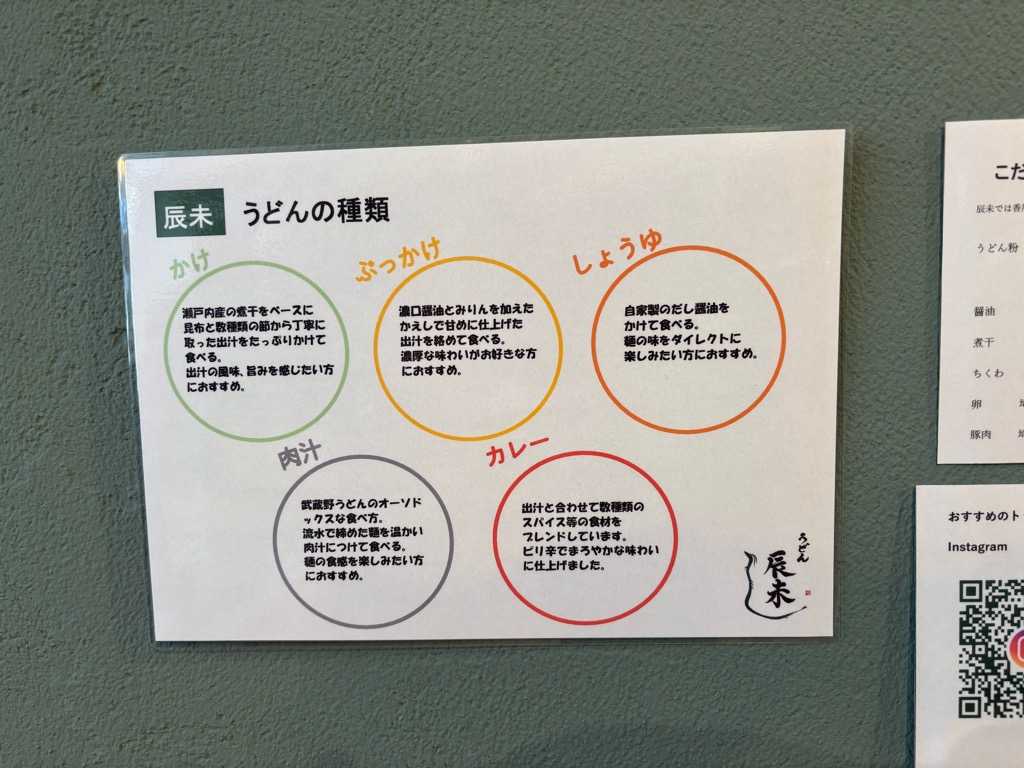 辰未
うどんの種類
かけ
瀬戸内産の煮干をベースに
昆布と数種類の節から丁寧に
取った出汁をたっぷりかけて
食べる。
出汁の風味、旨みを感じたい方
におすすめ。
ぶっかけ
濃口醤油とみりんを加えた
かえしで甘めに仕上げた
出汁を絡めて食べる。
濃厚な味わいがお好きな方
におすすめ。
しょうゆ
自家製のだし醤油を
かけて食べる。
麺の味をダイレクトに
楽しみたい方におすすめ。
肉汁
武蔵野うどんのオーソド
ックスな食べ方。
流水で締めた麺を温かい
肉汁につけて食べる。
麺の食感を楽しみたい方
におすすめ。
カレー
出汁と合わせて数種類の
スパイス等の食材を
ブレンドしています。
ピリ辛でまろやかな味わい
に仕上げました。
うどん
辰未
こだ
辰未では香川
うどん粉
醤油
煮干
ちくわ
卵
豚肉
おすすめのト
Instagram